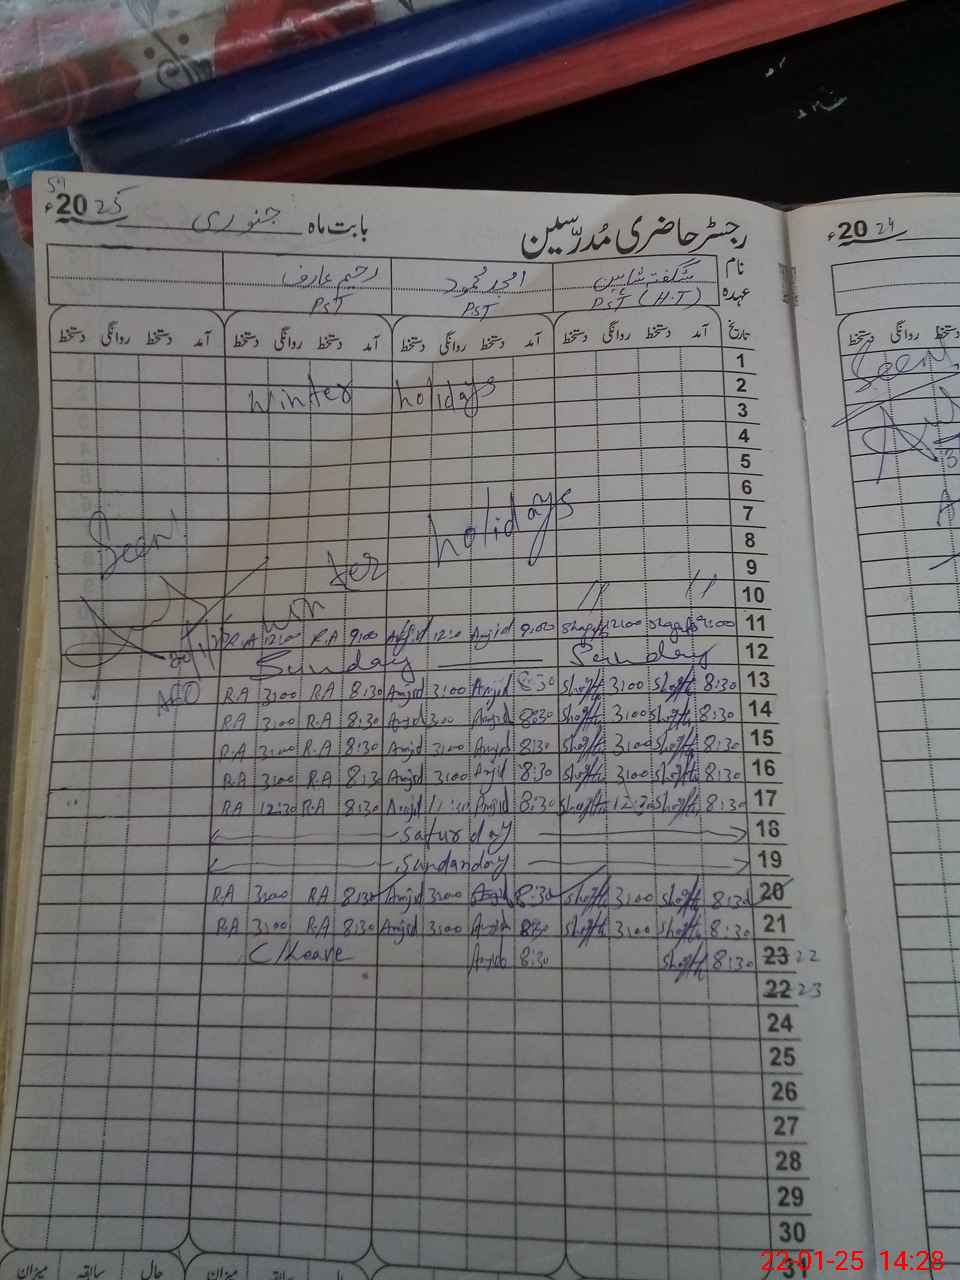 رجسٹر حاضری مُدرّسین بابت ماہ جنوری 2025ء
2024ء
نام شگفتہ شاہین امجد محمود رحیم عارف
عہدہ PST (H.T) PST PST
تاریخ آمد دستخط روانگی دستخط آمد دستخط روانگی دستخط آمد دستخط روانگی دستخط آمد دستخط روانگی دستخط
روانگی دستخط
1
Seen
winter holidays 2
3
4
5
6
7
Seen
winter holidays
8
9
10
R.A 12:00 R.A 9:00 Amjid 12:00 Amjid 9:00 12:00 9:00 11
Sunday Sunday 12
AEO
R.A 3:00 R.A 8:30 Amjid 3:00 Amjid 8:30 Shagfta 3:00 Shagfta 8:30 13
R.A 3:00 R.A 8:30 Amjid 3:00 Amjid 8:30 Shagfta 3:00 Shagfta 8:30 14
R.A 3:00 R.A 8:30 Amjid 3:00 Amjid 8:30 Shagfta 3:00 Shagfta 8:30 15
R.A 3:00 R.A 8:30 Amjid 3:00 Amjid 8:30 Shagfta 3:00 Shagfta 8:30 16
R.A 12:30 R.A 8:30 Amjid Amjid 8:30 Shagfta 12:30 Shagfta 8:30 17
Saturday 18
Sundanday 19
R.A 3:00 R.A 8:30 Amjid 3:00 Amjid 8:30 Shagfta 3:00 Shagfta 8:30 20
R.A 3:00 R.A 8:30 Amjid 3:00 Amjid 8:30 Shagfta 3:00 Shagfta 8:30 21
C/Leave Amjid 8:30 Shagfta 8:30 23 22
22 23
24
25
26
27
28
29
30
31
حال سابقہ میزان سابقہ میزان
22-01-25 14:28